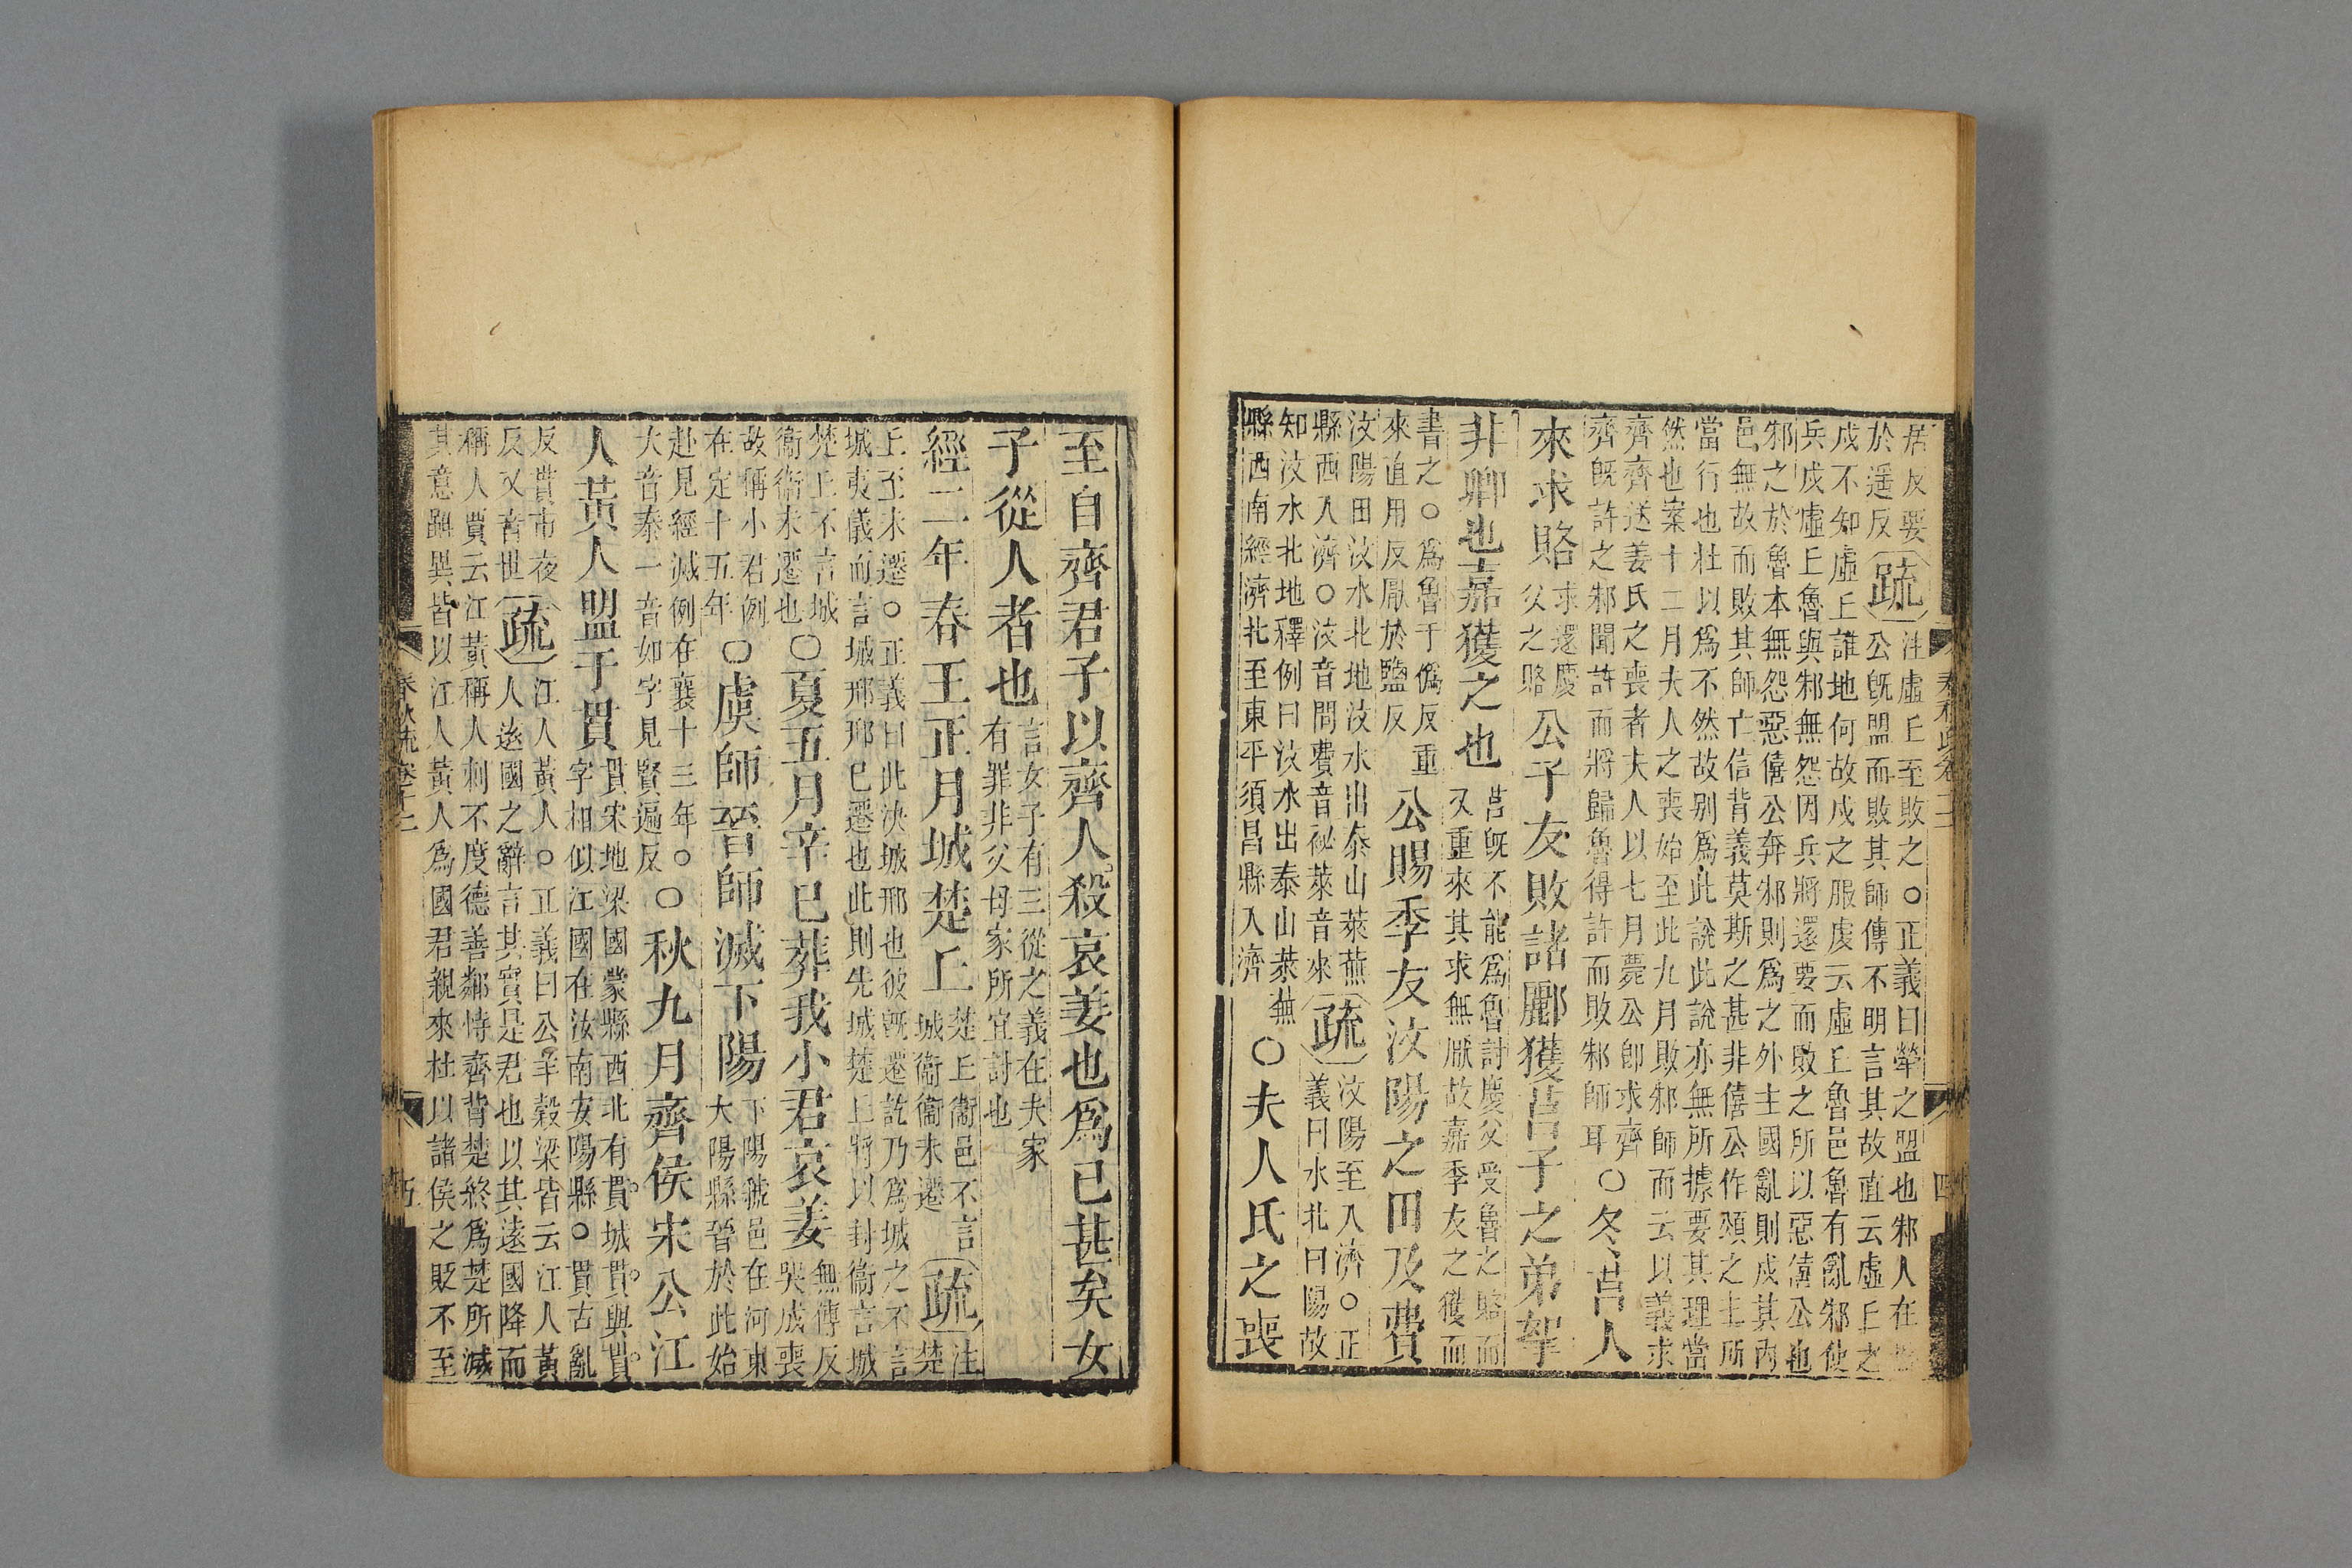 居反要
於遥反
疏
注虛丘至敗之○正義曰犖之盟也邾人在
公既盟而敗其師傳不明言其故直云虛丘之
戍不知虛丘誰地何故戍之服虔云虛丘魯邑魯有亂邾使
兵戍虛丘魯與邾無怨因兵將還要而敗之所以惡僖公也
邾之於魯本無怨惡僖公奔邾則爲之外主國亂則戍其內
邑無故而敗其師亡信背義莫斯之甚非僖公作頌之主所
當行也杜以爲不然故别爲此說此說亦無所據要其理當
然也案十二月夫人之喪始至此九月敗邾師而云以義求
齊齊送姜氏之喪者夫人以七月薨公卽求齊
齊旣許之邾聞許而將歸魯得許而敗邾師耳
○冬莒人
來求賂
求還慶
父之賂
公子友敗諸酈獲莒子之弟挐
非卿也嘉獲之也
莒旣不能爲魯討慶父受魯之賂而
又重來其求無厭故嘉季友之獲而
書之○爲魯于僞反重
來直用反厭於鹽反
公賜季友汶陽之田及費
汶陽田汶水北地汶水出泰山萊蕪
縣西入濟○汶音問費音祕萊音來
疏
汶陽至入濟○正
義曰水北曰陽故
知汶水北地釋例曰汶水出泰山萊蕪
縣西南經濟北至東平須昌縣入濟
○夫人氏之喪
春秋疏卷十二
四
至自齊君子以齊人殺哀姜也爲已甚矣女
子從人者也
言女子有三從之義在夫家
有罪非父母家所宜討也
經二年春王正月城楚丘
楚丘衞邑不言
城衞衞未遷
疏
注楚
丘至未遷○正義曰此決城邢也彼旣遷訖乃爲城之不言
城夷儀而言城邢邢已遷也此則先城楚丘將以封衞言城
楚丘不言城
衞衞未遷也
○夏五月辛巳葬我小君哀姜
無傳反
哭成喪
故稱小君例
在定十五年
○虞師晉師滅下陽
下陽虢邑在河東
大陽縣晉於此始
赴見經滅例在襄十三年○
大音泰一音如字見賢遍反
○秋九月齊侯宋公江
人黃人盟于貫
貫宋地梁國蒙縣西北有貰城貰與貫
字相似江國在汝南安陽縣○貫古亂
反貰市夜
反又音世
疏
江人黃人○正義曰公羊穀梁皆云江人黃
人遠國之辭言其實是君也以其遠國降而
稱人賈云江黃稱人刺不度德善鄰恃齊背楚終爲楚所滅
其意雖異皆以江人黃人爲國君親來杜以諸侯之貶不至
春秋疏卷十二
五